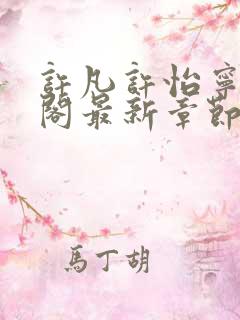 許凡許怡寧
閣最新章節
馬丁胡